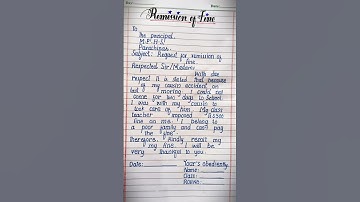 Remission of Fine
To
The principal,
M.P.H.S.
Parachinar.
Subject: Request for remission of
fine.
Respected Sir/Madam:
With due
respect it is stated that because
of my cousin accident on
last morning. I could not
come for two days to School
I was with my cousin to
took care of him. My class
teacher imposed
fine on me. I belong to
a poor family and can't pay
the fine.
Therefore, Kindly remit my
my fine. I will be
very thankful to you.
Date: Your's obediently
Name:
Class: